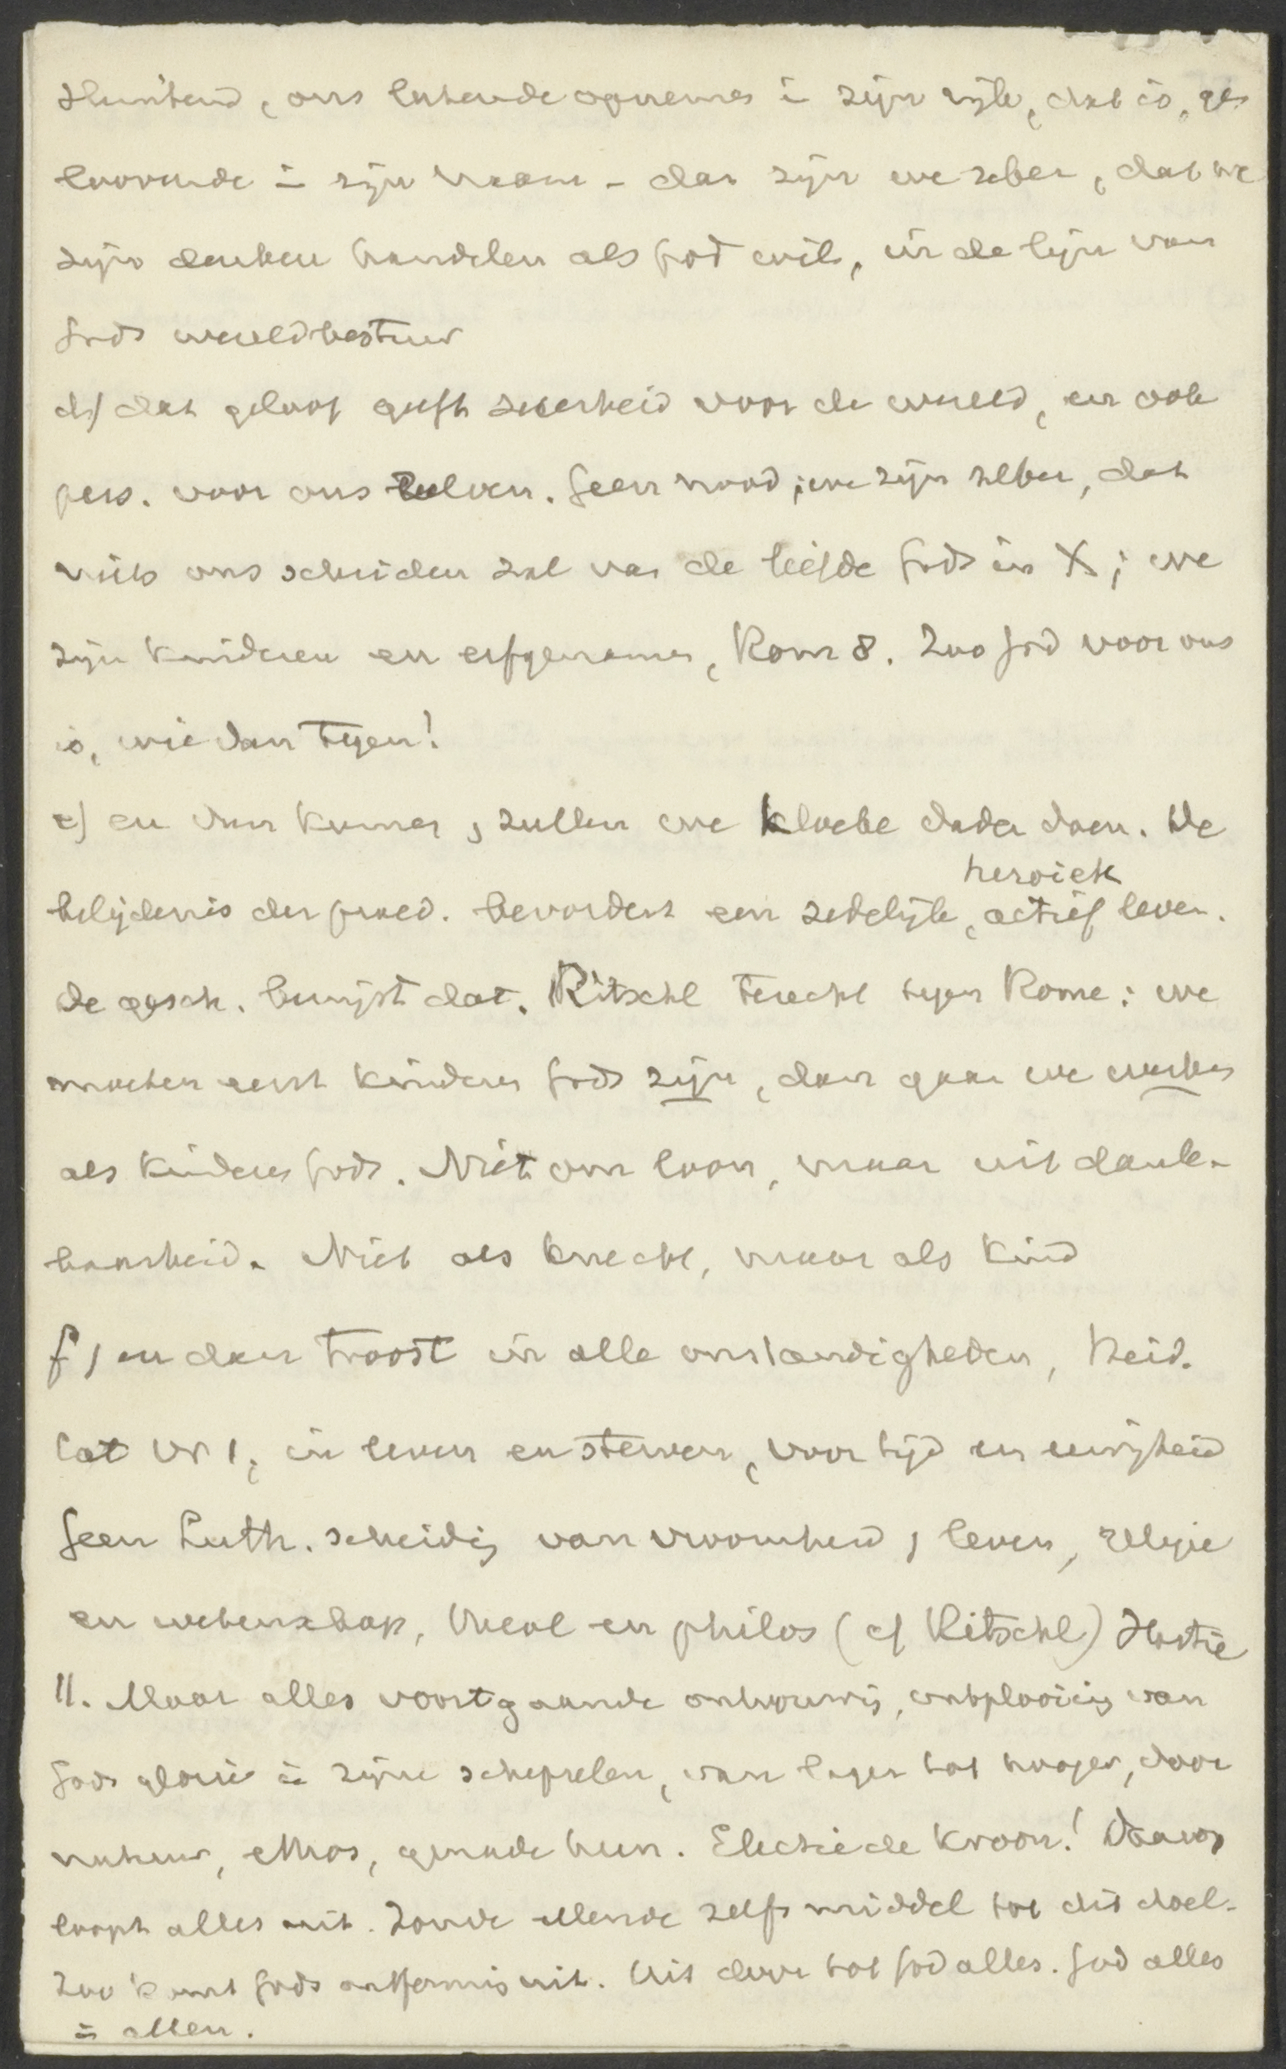 steunend, ons latende opnemen in zijn rijk, dat is, ge-
loovende in zijn naam - dan zijn we zeker, dat we
zijn denken handelen als God wil, in de lijn van
Gods wereldbestuur
d) dat geloof geeft zekerheid voor de wereld, en ook
pers. voor ons zelven. Geen nood; we zijn zeker, dat
niets ons scheiden zal van de liefde Gods in X; we
zijn kinderen en erfgenamen, Rom 8. Zoo God voor ons
is, wie dan tegen!
e) en dan kunnen, zullen we kloeke daden doen. De
heroiek
belijdenis der praed. bevordert een zedelijk, actief leven.
De gesch. bewijst dat. Ritschl terecht tegen Rome: we
moeten eerst kinderen Gods zijn, dan gaan we werken
als kinderen Gods. Niet om loon, maar uit dank-
baarheid. Niet als knecht, maar als kind
f) en dan troost in alle omstandigheden, Heid.
Cat vr 1, in leven en sterven, voor tijd en eeuwigheid
Geen Luth. scheiding van vroomheid, leven, religie
en wetenschap, theol en philos (cf Ritschl)
11. Maar alles voortgaande ontvouwing, ontplooiing van
Gods glorie in zijne schepselen, van lager tot hooger, door
natuur, ethos, genade heen. Electie de kroon! Daarop
loopt alles uit. Zonde ellende zelfs middel tot dit doel.
Zoo komt Gods ontferming uit. Uit door tot God alles. God alles
in allen.